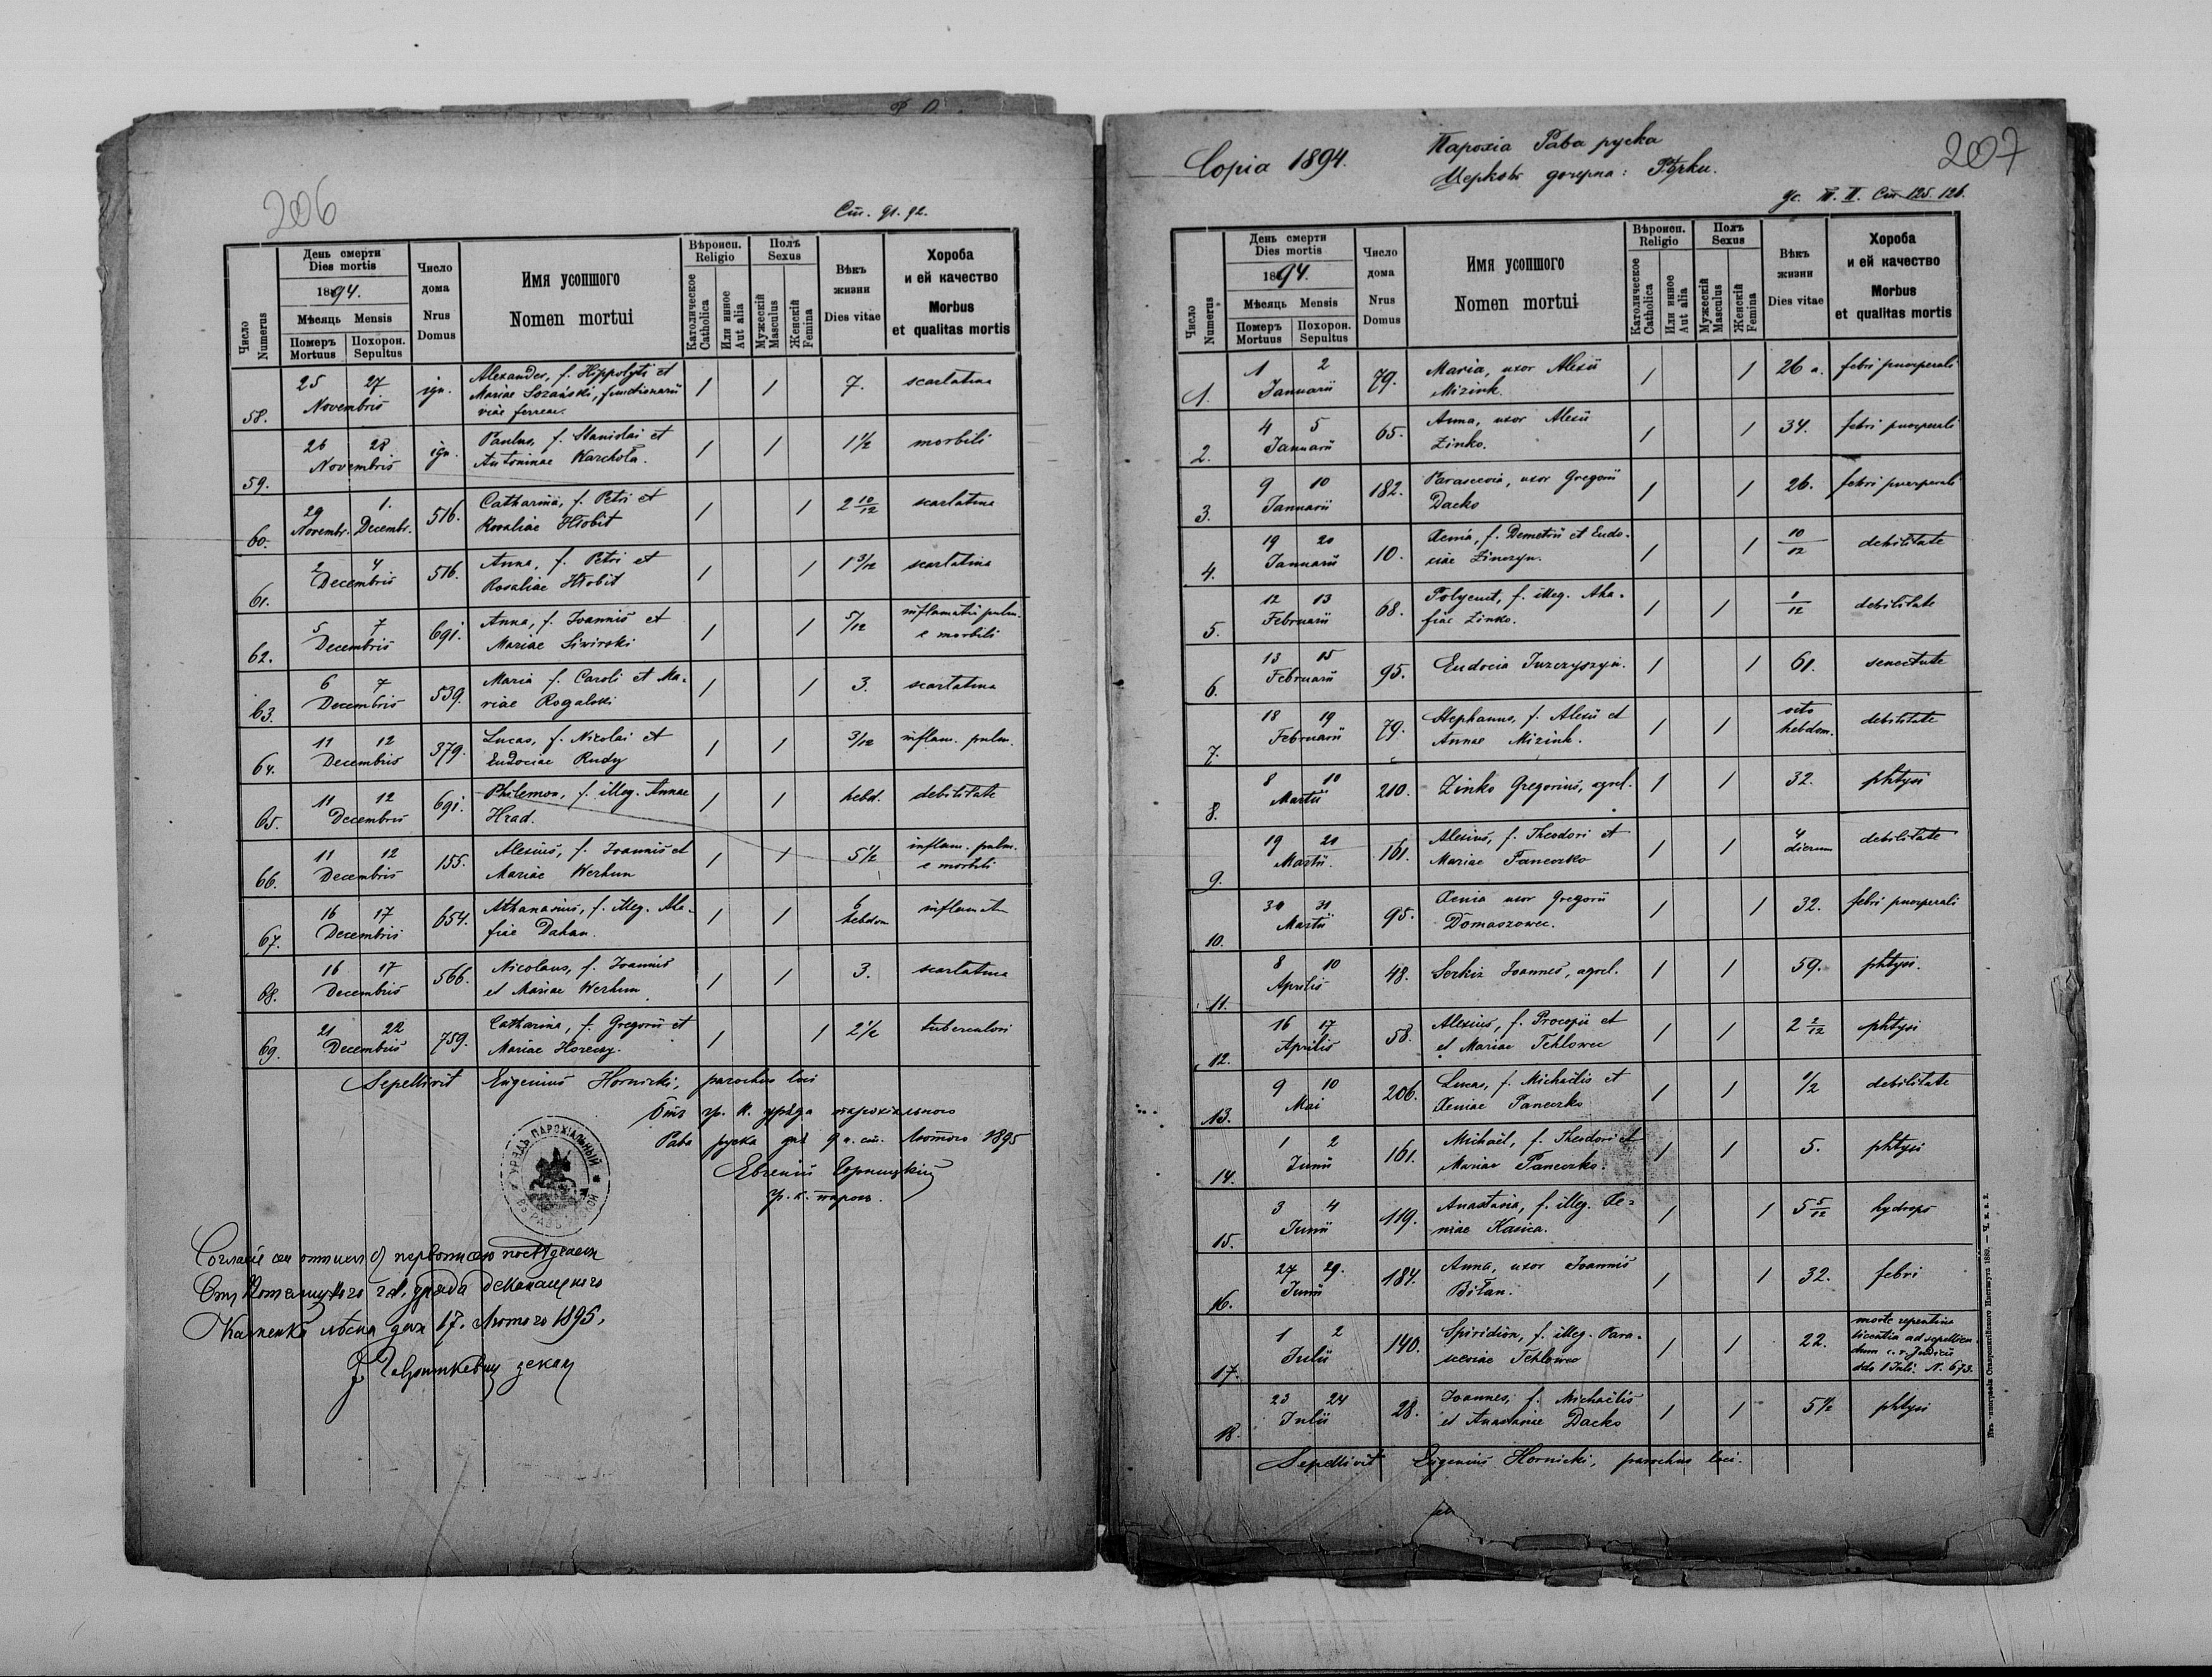 206
Ст. 91. 92.
Число Numerus
День смерти Dies mortis
1894.
Мѣсяць Mensis
Померъ Mortuus
Похорон. Sepultus
Число дома Nrus Domus
Имя усопшого Nomen mortui
Вѣроисп. Religio
Католическое Catholica
Или инное Aut alia
Полъ Sexus
Мужескій Masculus
Женскій Femina
Вѣкъ жизни Dies vitae
Хороба и ей качество Morbus et qualitas mortis
58. 25 27 Novembris ign. Alexander, f. Hippolyti et Mariae Lozański, functionarii viae ferreae. / / 7. scarlatina
59. 26 28 Novembris ign. Paulus, f. Stanislai et Antoninae Karchota. / / 1 1/2 morbili
60. 29 Novembr. 1. Decembr. 516. Catharina, f. Petri et Rosaliae Hrobit / / 2 10/12 scarlatina
61. 2 4 Decembris 516. Anna, f. Petri et Rosaliae Hrobit / / 1 3/12 scarlatina
62. 5 7 Decembris 691. Anna, f. Joannis et Mariae / / 5/12 inflamatio pulm. e morbili
63. 6 7 Decembris 539. Maria f. Caroli et Mariae Rogalski / / 3. scarlatina
64. 11 12 Decembris 379. Lucas, f. Nicolai et Eudociae Rudy / / 3/12 inflam. pulm.
65. 11 12 Decembris 691. Philemon, f. illeg. Annae Hrad. / / hebd. debilitate
66. 11 12 Decembris 155. Alexius, f. Joannis et Mariae Werhun / / 5 1/2 inflam. pulm. e morbili
67. 16 17 Decembris 654. Athanasius, f. illeg. Ahafiae Dahan. / / 6 hebdom
68. 16 17 Decembris 566. Nicolaus, f. Joannis et Mariae Werhun / / 3. scarlatina
69. 21 22 Decembris 759. Catharina, f. Gregorii et Mariae Horeczy. / / 2 1/2 tuberculosi
Sepelivit Eugenius Hornicki, parochus loci
Отъ гр. к. уряда парохіального
Рава руска дня 9 н. ст. Лютого 1895
Евгеній Горницкій
гр. к. парох.
УРЯДЪ ПАРОХІАЛЬНЫЙ
Каменка лѣсна дня 17. Лютого 1895.
207
Copia 1894.
Парохіа Рава руска
Церковь дочерна: Рѣчки.
Ст. 125. 126.
Число Numerus
День смерти Dies mortis
1894.
Мѣсяць Mensis
Померъ Mortuus
Похорон. Sepultus
Число дома Nrus Domus
Имя усопшого Nomen mortui
Вѣроисп. Religio
Католическое Catholica
Или инное Aut alia
Полъ Sexus
Мужескій Masculus
Женскій Femina
Вѣкъ жизни Dies vitae
Хороба и ей качество Morbus et qualitas mortis
1. 1 2 Januarii 79. Maria, uxor Alexii Mizink. / / 26 a. febri puerperali
2. 4 5 Januarii 65. Anna, uxor Alexii Zinko. / / 34. febri puerperali
3. 9 10 Januarii 182. Parascevia, uxor Gregorii Dacko / / 26. febri puerperali
4. 19 20 Januarii 10. Xenia, f. Demetrii et Eudoxiae / / 10/12 debilitate
5. 12 13 Februarii 68. f. illeg. Ahafiae Zinko. / / 1/12 debilitate
6. 13 15 Februarii 95. Eudocia Juzczyszyn. / / 61. senectute
7. 18 19 Februarii 79. Stephanus, f. Alexii et Annae Mizink. / / octo hebdom. debilitate
8. 8 10 Martii 210. Zinko Gregorius, agricl. / / 32. phtysi
9. 19 20 Martii. 161. Alexius, f. Theodori et Mariae Paneczko / / 4 dierum debilitate
10. 30 31 Martii 95. Xenia uxor Gregorii Domaszowec. / / 32. febri puerperali
11. 8 10 Aprilis 48. Serkiz Joannes, agricl. / / 59. phtysi.
12. 16 17 Aprilis 58. Alexius, f. Procopii et et Mariae Tchlowec / / 2 2/12 phtysi
13. 9 10 Mai 206. Lucas, f. Michaelis et Xeniae Paneczko / / 1/2 debilitate
14. 1 2 Junii 161. Michaël, f. Theodori et Mariae Paneczko. / / 5. phtysi
15. 3 4 Junii 119. Anastasia, f. illeg. Xeniae Kasica. / / 5 5/12 hydrops
16. 27 29. Junii 184. Anna, uxor Joannis Biłan. / / 32. febri
17. 1 2 Julii 140. Spiridion, f. illeg. Parasceviae Tchlowec / / 22. morte repentina licentia ad sepeliendum c. r. Judicii ddo 1 Juli. N. 673.
18. 23 24 Julii 28. Joannes, f. Michaëlis et Anastasiae Dacko / / 5 1/2 phtysi
Sepelivit Eugenius Hornicki, parochus loci.
Изъ типографіи Ставропигійского Института 1889. — Ч. в. а. 2.